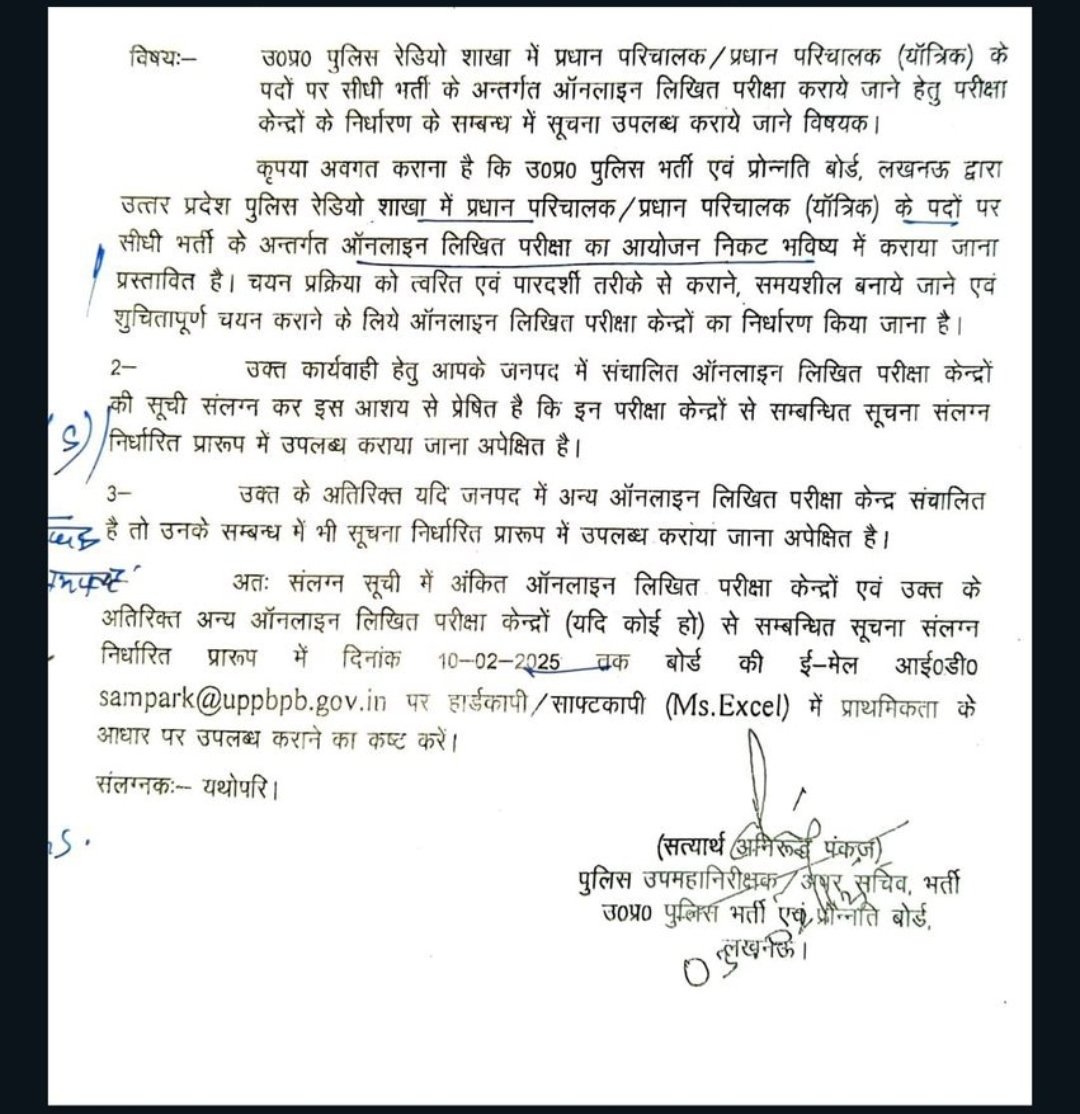 विषयः– उ0प्र0 पुलिस रेडियो शाखा में प्रधान परिचालक/प्रधान परिचालक (यॉत्रिक) के
पदों पर सीधी भर्ती के अन्तर्गत ऑनलाइन लिखित परीक्षा कराये जाने हेतु परीक्षा
केन्द्रों के निर्धारण के सम्बन्ध में सूचना उपलब्ध कराये जाने विषयक।
कृपया अवगत कराना है कि उ0प्र0 पुलिस भर्ती एवं प्रोन्नति बोर्ड, लखनऊ द्वारा
उत्तर प्रदेश पुलिस रेडियो शाखा में प्रधान परिचालक/प्रधान परिचालक (यॉत्रिक) के पदों पर
सीधी भर्ती के अन्तर्गत ऑनलाइन लिखित परीक्षा का आयोजन निकट भविष्य में कराया जाना
प्रस्तावित है। चयन प्रक्रिया को त्वरित एवं पारदर्शी तरीके से कराने, समयशील बनाये जाने एवं
शुचितापूर्ण चयन कराने के लिये ऑनलाइन लिखित परीक्षा केन्द्रों का निर्धारण किया जाना है।
2– उक्त कार्यवाही हेतु आपके जनपद में संचालित ऑनलाइन लिखित परीक्षा केन्द्रों
की सूची संलग्न कर इस आशय से प्रेषित है कि इन परीक्षा केन्द्रों से सम्बन्धित सूचना संलग्न
निर्धारित प्रारूप में उपलब्ध कराया जाना अपेक्षित है।
3– उक्त के अतिरिक्त यदि जनपद में अन्य ऑनलाइन लिखित परीक्षा केन्द्र संचालित
है तो उनके सम्बन्ध में भी सूचना निर्धारित प्रारूप में उपलब्ध कराया जाना अपेक्षित है।
अतः संलग्न सूची में अंकित ऑनलाइन लिखित परीक्षा केन्द्रों एवं उक्त के
अतिरिक्त अन्य ऑनलाइन लिखित परीक्षा केन्द्रों (यदि कोई हो) से सम्बन्धित सूचना संलग्न
निर्धारित प्रारूप में दिनांक 10–02–2025 तक बोर्ड की ई–मेल आई0डी0
sampark@uppbpb.gov.in पर हार्डकापी/साफ्टकापी (Ms.Excel) में प्राथमिकता के
आधार पर उपलब्ध कराने का कष्ट करें।
संलग्नकः– यथोपरि।
(सत्यार्थ अनिरूद्ध पंकज)
पुलिस उपमहानिरीक्षक/अपर सचिव, भर्ती
उ0प्र0 पुलिस भर्ती एवं प्रोन्नति बोर्ड,
लखनऊ।